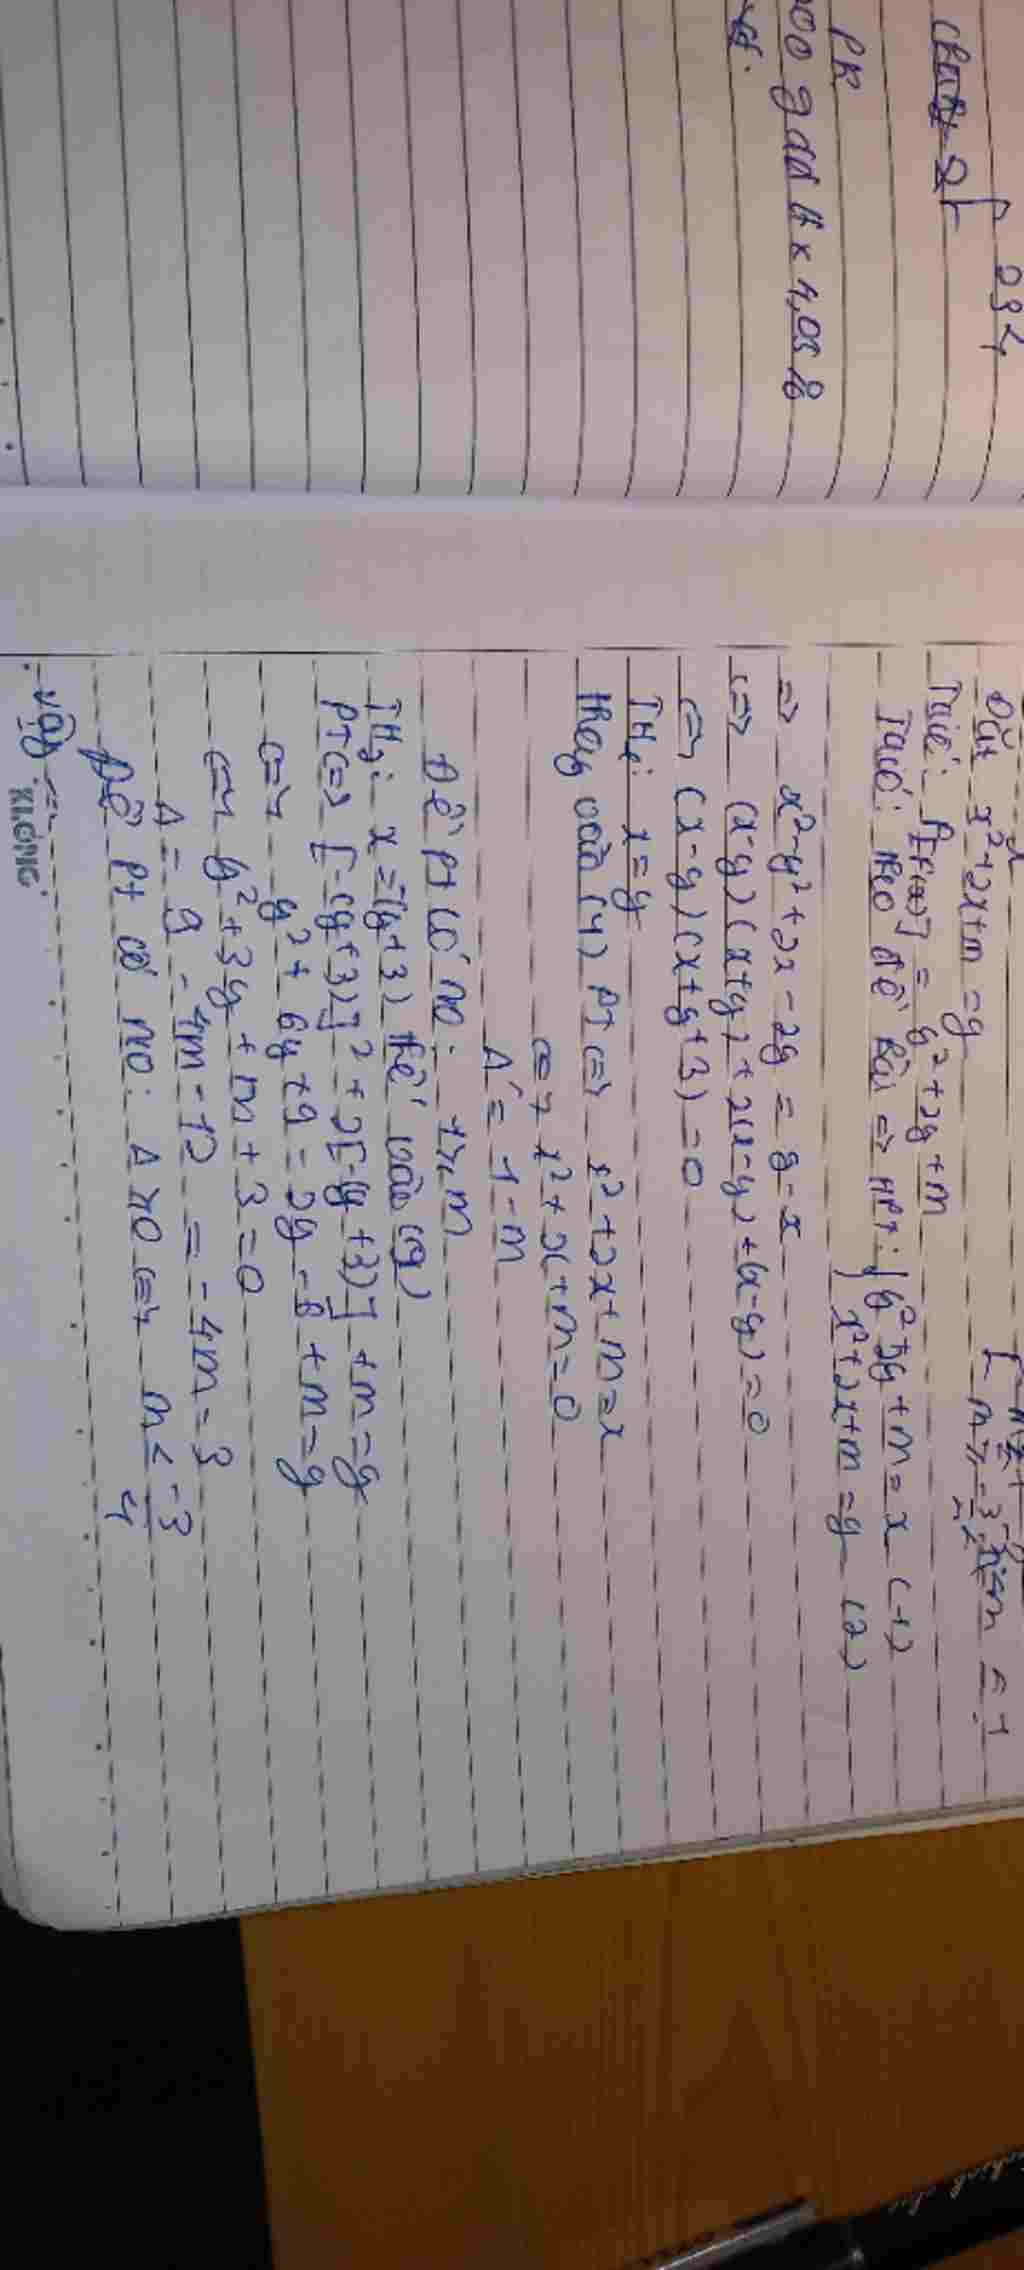 234
PK
00 g dd H x 1,05 g
Đặt x² + 2x + m = y
Ta có: P[P(x)] = y² + 2y + m
Ta có: theo đề bài => HPT: { y² + 2y + m = x (1)
x² + 2x + m = y (2)
=> x² - y² + 2x - 2y = y - x
<=> (x-y)(x+y) + 2(x-y) + (x-y) = 0
<=> (x-y)(x+y+3) = 0
TH1: x = y
thay vào (1) PT <=> x² + 2x + m = x
<=> x² + x + m = 0
Δ = 1 - m
Để pt có no: 1 ≥ m
TH2: x = -(y+3) thế vào (2)
PT <=> [-(y+3)]² + 2[-(y+3)] + m = y
<=> y² + 6y + 9 - 2y - 6 + m = y
<=> y² + 3y + m + 3 = 0
Δ = 9 - 4m - 12 = -4m - 3
Để pt có no: Δ ≥ 0 <=> m ≤ -3/4
Vậy
KLONG